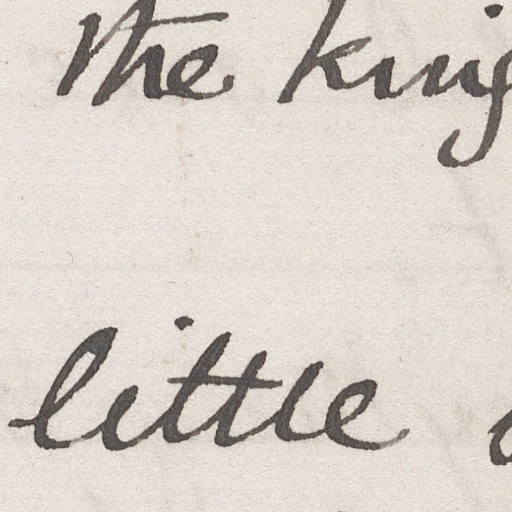 the king
little